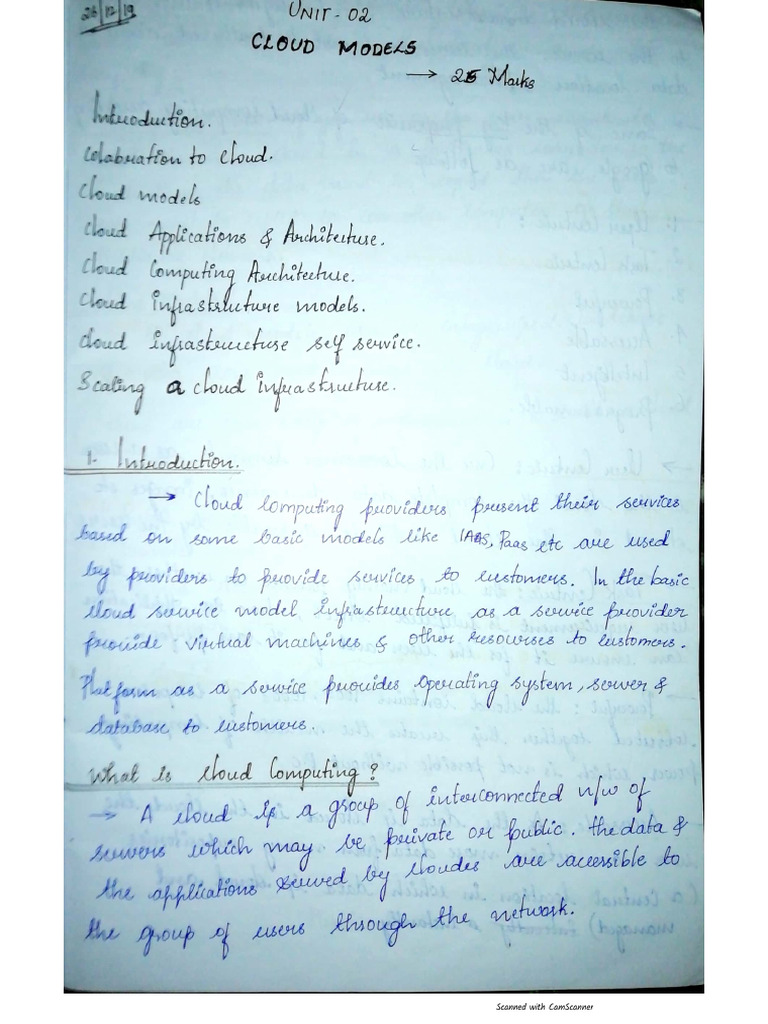 26/12/19
UNIT - 02
CLOUD MODELS
→ 25 Marks
Introduction.
Colabration to cloud.
Cloud models
Cloud Applications & Architecture.
Cloud Computing Architecture.
Cloud infrastructure models.
Cloud infrastructure self service.
Scaling a cloud infrastructure.
1. Introduction.
→ Cloud Computing providers present their services
based on some basic models like IAAS, Paas etc are used
by providers to provide services to customers. In the basic
cloud service model infrastructure as a service provider
provide : virtual machines & other resourses to customers.
Platform as a service provides operating system, server &
database to customers.
What is cloud Computing ?
→ A cloud is a group of interconnected n/w of
servers which may be private or public. the data &
the applications served by cloudes are accessible to
the group of users through the network.
Scanned with CamScanner